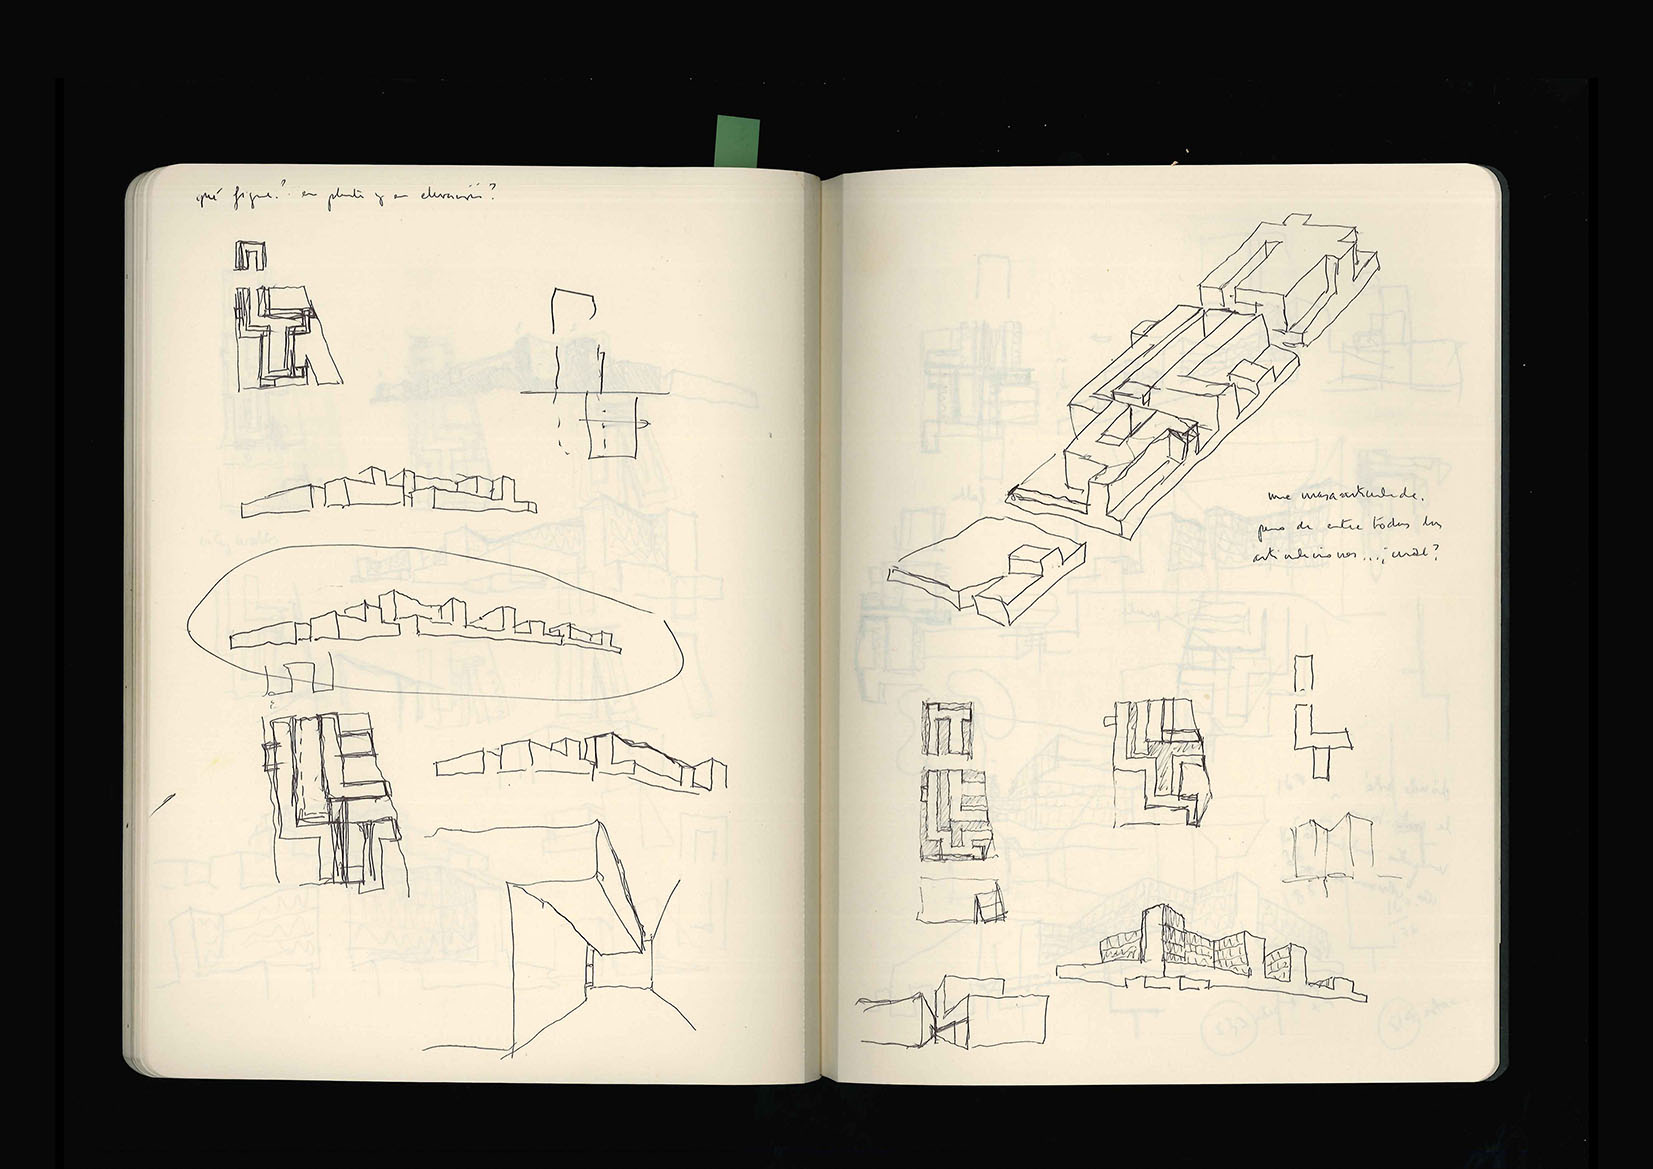 qué figura? en planta y en elevación?
una masa articulada.
pero de entre todas las
articulaciones...¿cuál?